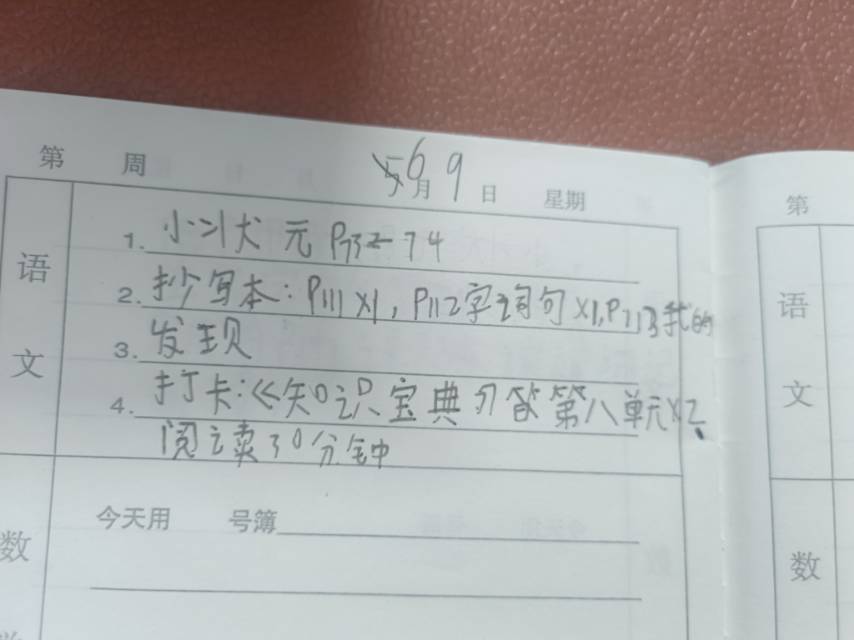 第 周 6月9日 星期
第
语文
1. 小 状元 P73-74
2. 抄写本：P111×1，P112字词句×1，P113我的
3. 发现
4. 打卡：《知识宝典 第八单元×2、
阅读30分钟
语文
数
今天用 号簿
数